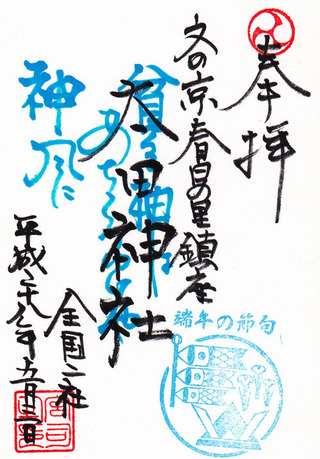 奉拝
文の京 春日の里鎮座
太田神社
神風に
全国二社
平成 年五月 日
端午の節句